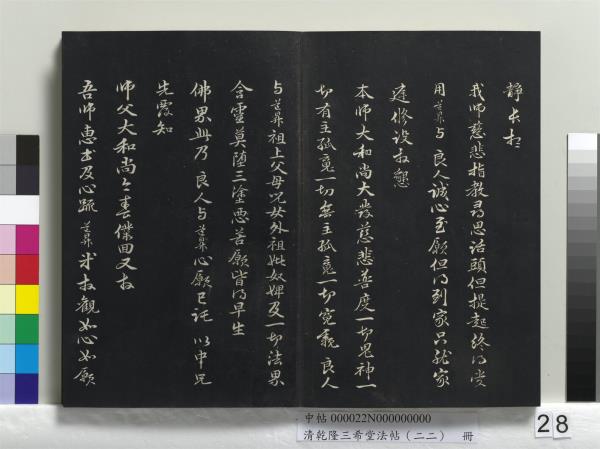 靜長起
我師慈悲指教尋思話頭但提起終得受
用孟頫與良人誠心至願但得到家只就家
建修設拜懇
本師大和尚大發慈悲普度一切鬼神一
切有主孤魂一切無主孤魂一切冤親良人
與孟頫祖上父母兄女外祖妣奴婢及一切法界
含靈莫墮三塗惡苦願皆得早生
佛界此乃良人與孟頫心願已託以中兄
先覆知
師父大和尚今春僕回又拜
吾師惠書及心疏孟頫米拜觀如心如願
申帖 000022N000000000
清乾隆三希堂法帖(二二) 冊
28